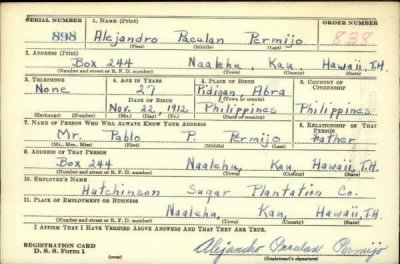 SERIAL NUMBER 1. NAME (Print) ORDER NUMBER
898 Alejandro Paculan Permijo 838
(First) (Middle) (Last)
2. ADDRESS (Print)
Box 244 Naalehu, Kau, Hawaii, T.H.
(Number and street or R. F. D. number) (Town) (County) (State)
3. TELEPHONE 4. AGE IN YEARS 5. PLACE OF BIRTH 6. COUNTRY OF CITIZENSHIP
None 27 Pidigan, Abra
DATE OF BIRTH (Town or county)
Nov. 22, 1912 Philippines Philippines
(Exchange) (No.) (Mo.) (Day) (Yr.) (State or country)
7. NAME OF PERSON WHO WILL ALWAYS KNOW YOUR ADDRESS 8. RELATIONSHIP OF THAT PERSON
Mr. Pablo P. Permijo Father
(Mr., Mrs., Miss) (First) (Middle) (Last)
9. ADDRESS OF THAT PERSON
Box 244 Naalehu, Kau, Hawaii, T.H.
(Number and street or R. F. D. number) (Town) (County) (State)
10. EMPLOYER'S NAME
Hutchinson Sugar Plantation Co.
11. PLACE OF EMPLOYMENT OR BUSINESS
Naalehu, Kau, Hawaii, T.H.
(Number and street or R. F. D. number) (Town) (County) (State)
I AFFIRM THAT I HAVE VERIFIED ABOVE ANSWERS AND THAT THEY ARE TRUE.
REGISTRATION CARD
D. S. S. Form 1 Alejandro Paculan Permijo
(Registrant's signature)